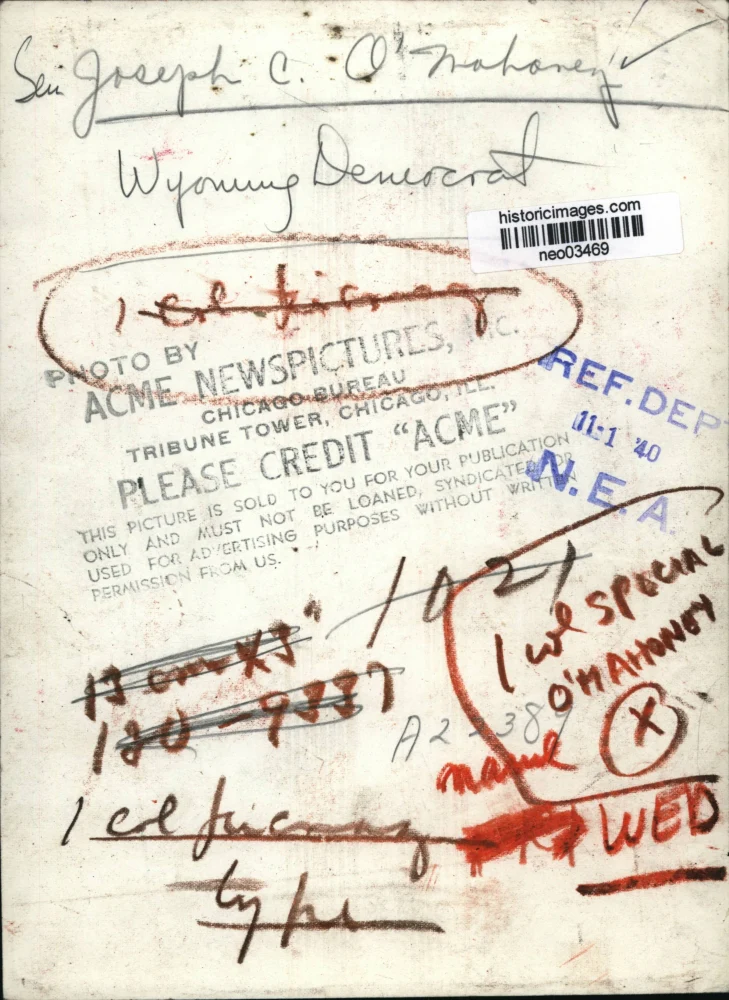 Sen Joseph C. O'Mahoney
Wyoming Democrat
historicimages.com
neo03469
1 col
PHOTO BY
ACME NEWSPICTURES, INC.
CHICAGO BUREAU
TRIBUNE TOWER, CHICAGO, ILL.
PLEASE CREDIT "ACME"
THIS PICTURE IS SOLD TO YOU FOR YOUR PUBLICATION
ONLY AND MUST NOT BE LOANED, SYNDICATED OR
USED FOR ADVERTISING PURPOSES WITHOUT WRITTEN
PERMISSION FROM US.
REF. DEPT
11-1 '40
N. E. A.
1021
1 col SPECIAL
O'MAHONEY
X
13 ems X 3"
180-9337
A22389
WED
1 col
type